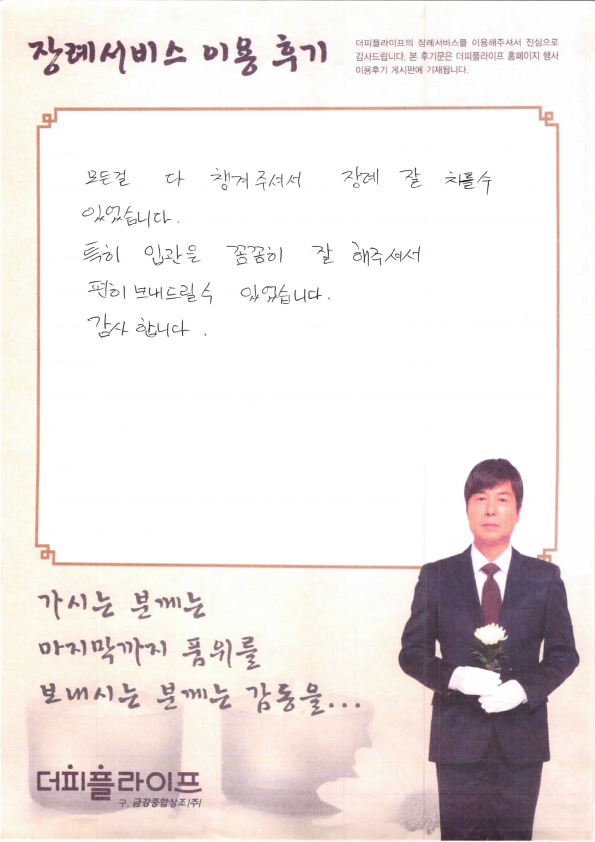 장례서비스 이용 후기
더피플라이프의 장례서비스를 이용해주셔서 진심으로
감사드립니다. 본 후기문은 더피플라이프 홈페이지 행사
이용후기 게시판에 기재됩니다.
모든걸 다 챙겨주셔서 장례 잘 치를수
있었습니다.
특히 입관은 꼼꼼히 잘 해주셔서
편히 보내드릴수 있었습니다.
감사합니다.
가시는 분께는
마지막까지 품위를
보내시는 분께는 감동을...
더피플라이프
구. 금강종합상조(주)